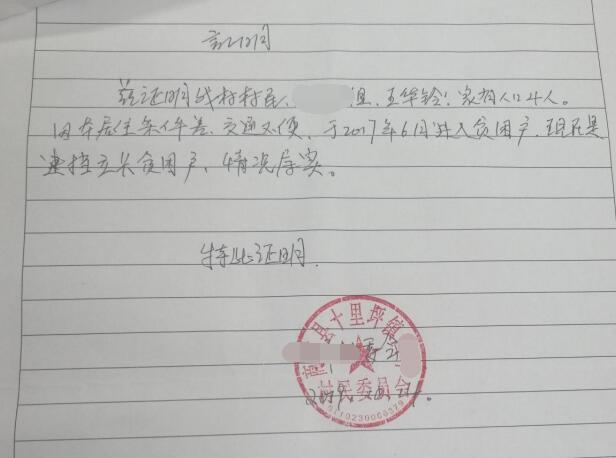 证明
兹证明我村村民、组、王华铃!家有人口4人。
因本居住条件差、交通不便,于2017年6月进入贫困户,现在是
建档立卡贫困户、情况属实。
特此证明.
十里坪镇
村民委员会